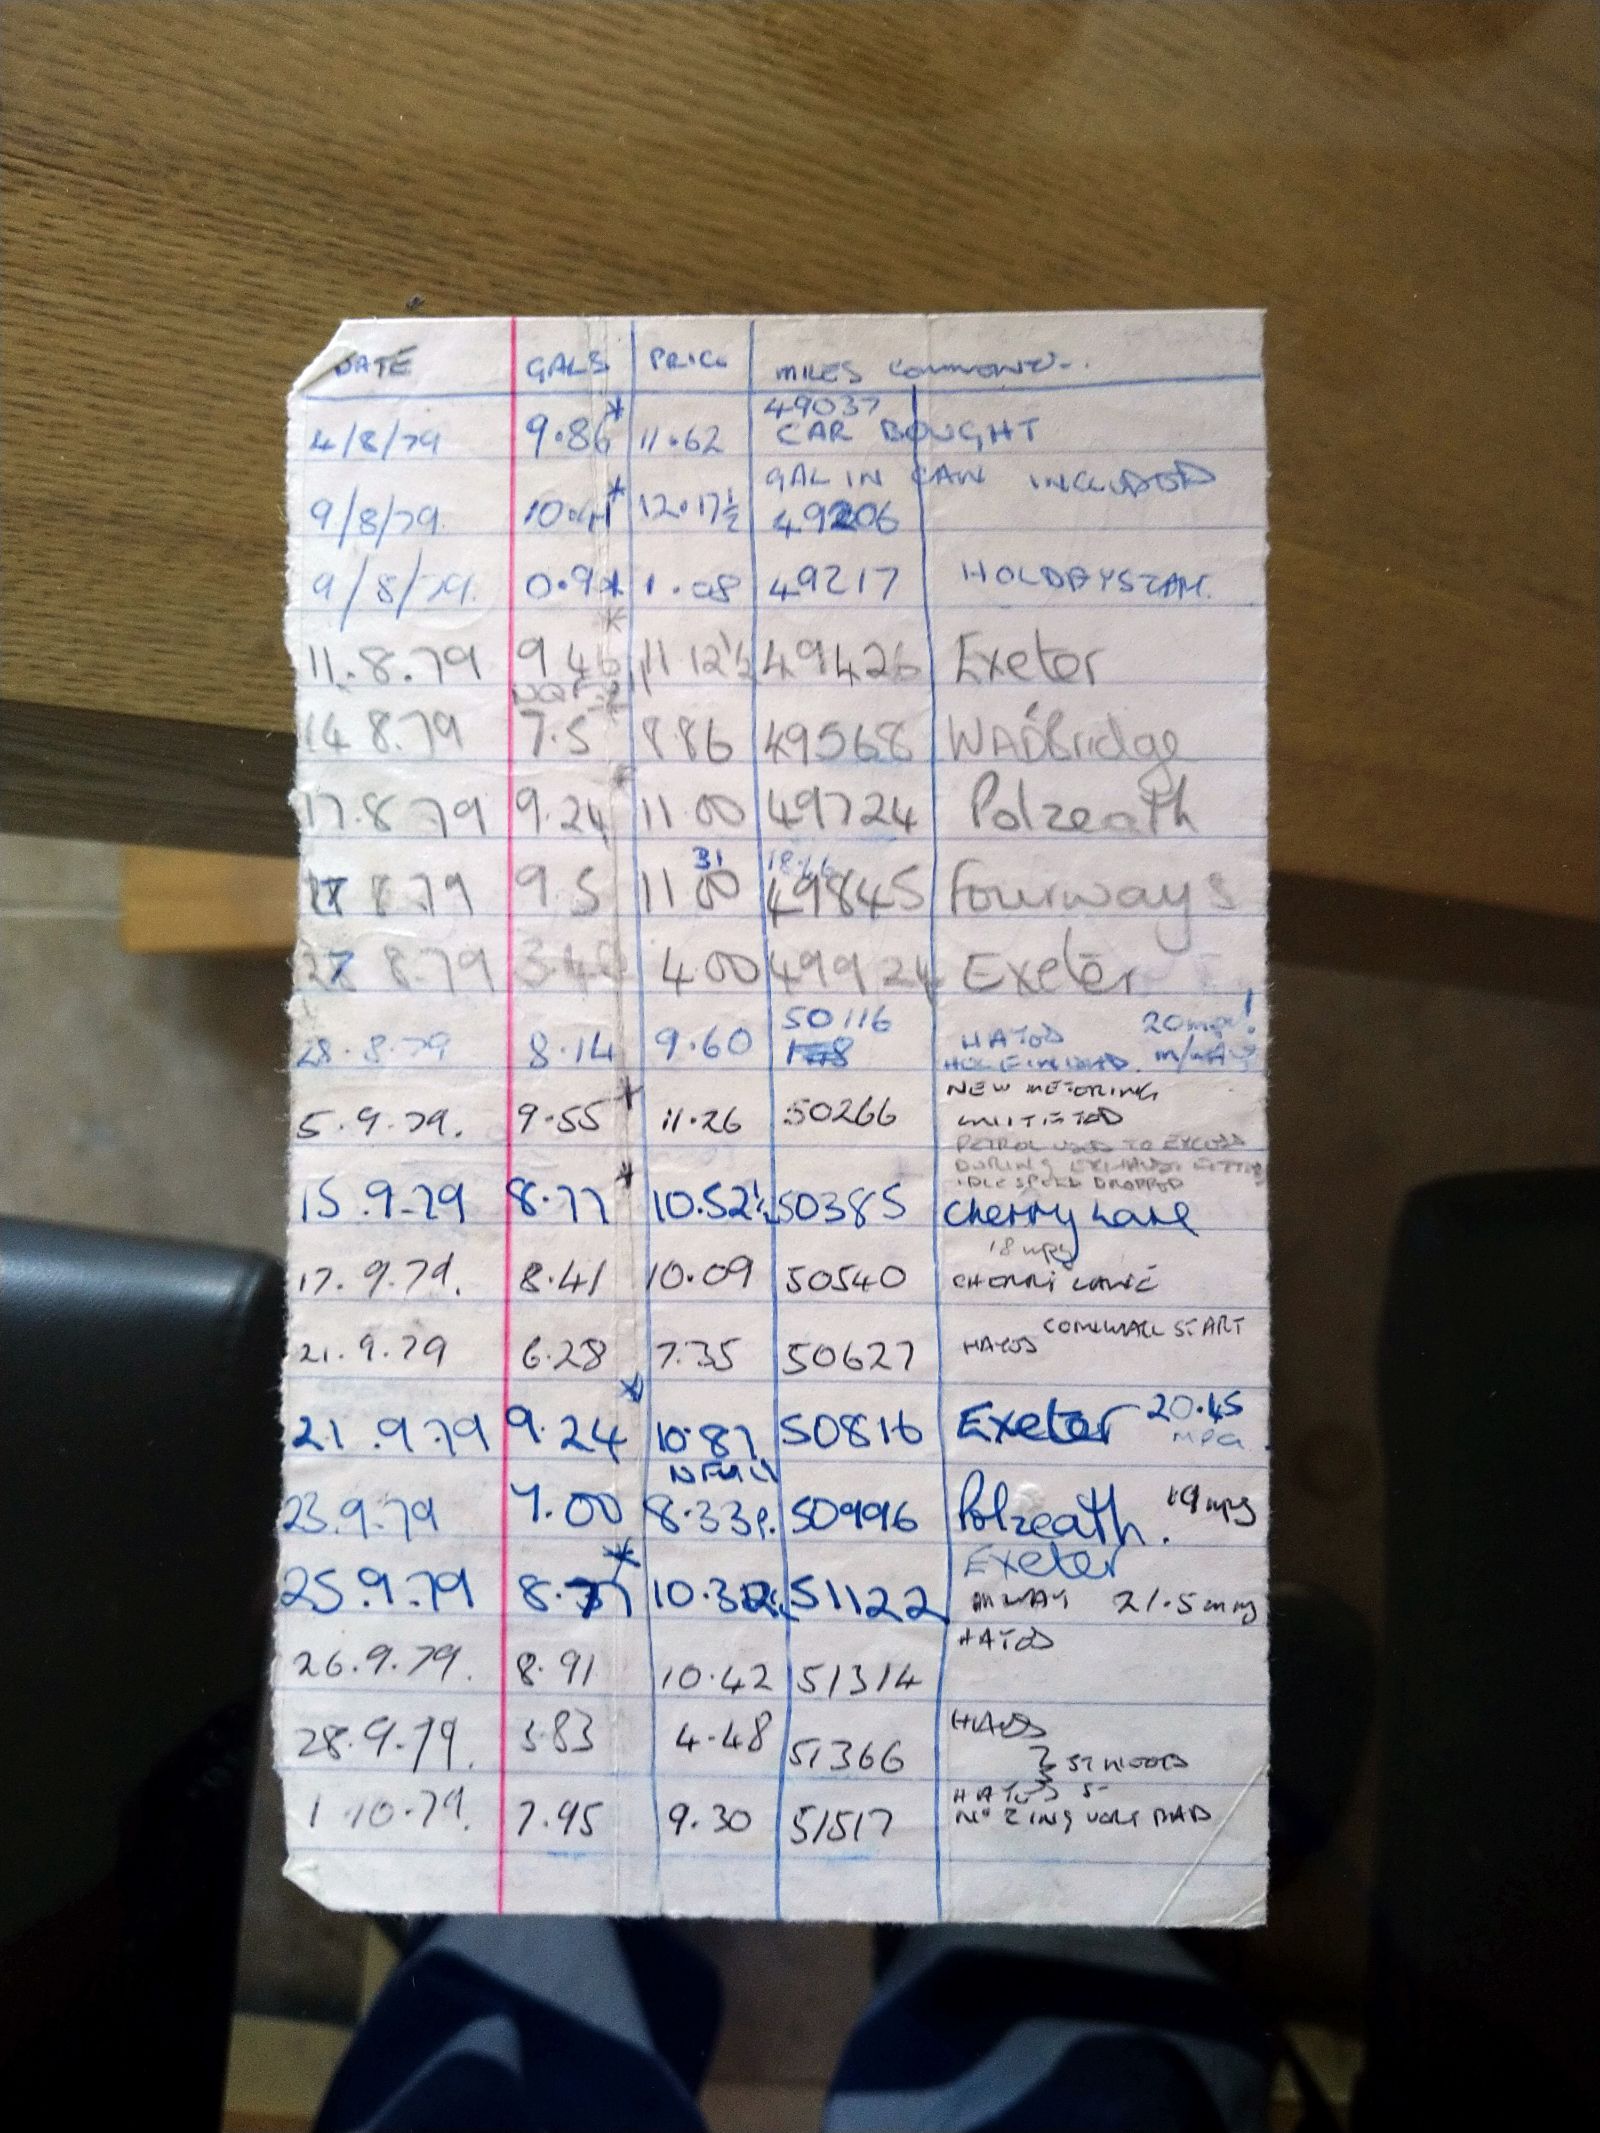 DATE GALS PRICE MILES
4/8/79 9.86* 11.62 49037 CAR BOUGHT
GAL IN CAN INCLUDED
9/8/79. 12.17½ 49206
9/8/79. 1.08 49217
11.8.79 9 46* 11 12½ 49426 Exeter
14 8.79 7.5* 8.86 49568 WADBridge
17.8 79 9.24* 11.00 49724 Polzeath
8 79 9 5 11 00 31 49845 Fourways
8.79 4.00 49924 Exeter
50116
28.8.79 8.14 9.60 20mpg!
NEW METERING
5.9.79. 9.55* 11.26 50266 UNIT FITTED
PETROL USED TO EXCESS
DURING EXHAUST FITTING
IDLE SPEED DROPPED
15.9.79 8.77* 10.52½ 50385 Cherry Lane
18 mpg
17.9.79. 8.41 10.09 50540 CHERRY LANE
CORNWALL START
21.9.79 6.28 7.35 50627 HAYES
21.9.79 9.24* 10.87 50816 Exeter 20.45
MPG
23.9.79 7.00 8.33p. 50996 Polzeath. 19mpg
Exeter
25.9.79 51122 M WAY 21.5mpg
HAYES
26.9.79. 8.91 10.42 51314
28.9.79. 3.83 4.48 51366 HAYES
HAYES
1.10.79. 7.95 9.30 51517 VERY BAD